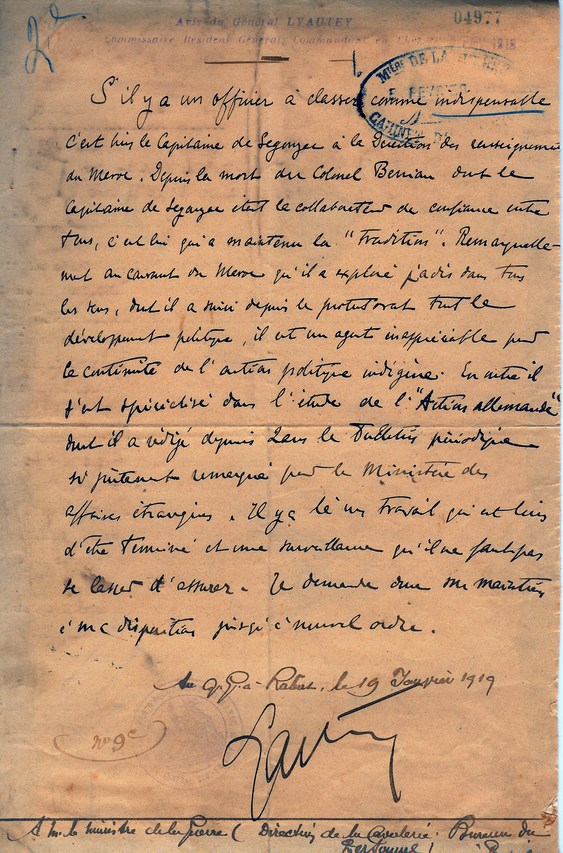 2e
Avis du Général LYAUTEY
Commissaire Résident Général, Commandant en Chef
04977
1918
MERE DE LA GUERRE
FEVRIER
CABINET DU
S'il y a un officier à classer comme indispensable
c'est bien le Capitaine de Segonzac à la Direction des renseignements
du Maroc. Depuis la mort du Colonel Berriau dont le
Capitaine de Segonzac était le collaborateur de confiance entre
tous, c'est lui qui a maintenu la "Tradition". Remarquable-
ment au courant du Maroc qu'il a exploré jadis dans tous
les sens, dont il a suivi depuis le protectorat tout le
développement politique, il est un agent inappréciable pour
la continuité de l'action politique indigène. En outre il
s'est spécialisé dans l'étude de l'"Action allemande"
dont il a rédigé depuis 2 ans le Bulletin périodique
si justement remarqué par le Ministère des
affaires étrangères. Il y a là un travail qui est loin
d'être terminé et une surveillance qu'il ne faut pas
se lasser d'assurer. Je demande donc son maintien
à ma disposition jusqu'à nouvel ordre.
Au G.Q.G. à Rabat, le 19 Janvier 1919
Lyautey
No 9c
A M. le Ministre de la Guerre (Direction de la Cavalerie. Bureau du
Personnel) à Paris